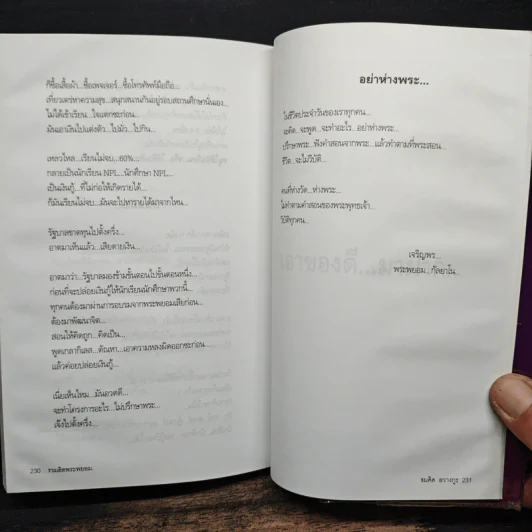 ก็ซื้อเสื้อผ้า...ซื้อเพจเจอร์...ซื้อโทรศัพท์มือถือ...
เที่ยวเตร่หาความสุข...สนุกสนานกันอยู่รอบสถานศึกษานั่นเอง...
ไม่ได้เข้าเรียน...ใจแตกซะก่อน...
มันเอาเงินไปแต่งตัว...ไปมั่ว...ไปกิน...
เหลวไหล...เรียนไม่จบ...60%...
กลายเป็นนักเรียน NPL...นักศึกษา NPL...
เป็นเงินกู้...ที่ไม่ก่อให้เกิดรายได้...
ก็มันเรียนไม่จบ...มันจะไปหารายได้มาจากไหน...
รัฐบาลขาดทุนไปตั้งครึ่ง...
อาตมาเห็นแล้ว...เสียดายเงิน...
อาตมาว่า...รัฐบาลมองข้ามขั้นตอนไปขั้นตอนหนึ่ง...
ก่อนที่จะปล่อยเงินกู้ให้นักเรียนนักศึกษาพวกนี้...
ทุกคนต้องมาผ่านการอบรมจากพระพยอมเสียก่อน...
ต้องมาพัฒนาจิต...
สอนให้คิดถูก...คิดเป็น...
พูดเกลากิเลส...ตัณหา...เอาความหลงผิดออกซะก่อน...
แล้วค่อยปล่อยเงินกู้...
เนี่ยเห็นไหม...มันอวดดี...
จะทำโครงการอะไร...ไม่ปรึกษาพระ...
เจ๊งไปตั้งครึ่ง...
230 รวมฮิตพระพยอม
อย่าห่างพระ...
ในชีวิตประจำวันของเราทุกคน...
จะคิด...จะพูด...จะทำอะไร...อย่าห่างพระ...
ปรึกษาพระ...ฟังคำสอนจากพระ...แล้วทำตามที่พระสอน...
ชีวิต...จะไม่วิบัติ...
คนที่ห่างวัด...ห่างพระ...
ไม่ทำตามคำสอนของพระพุทธเจ้า...
วิบัติทุกคน...
เจริญพร...
พระพยอม กัลยาโณ...
231